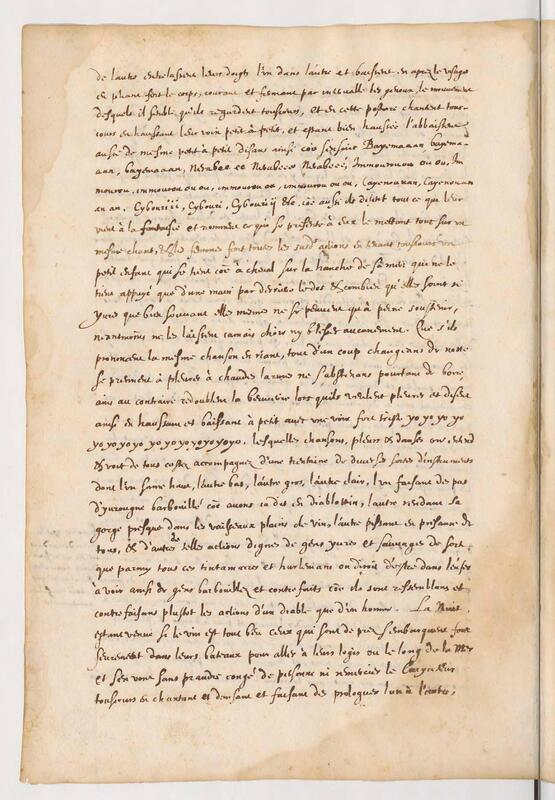 de l'autre entrelassent leurs doigts l'un dans l'autre et baissent en apres le visage
en pliant fort le corps, courant et fermant par intervalle les genoux, le mouvement
desquels il semble qu'ils regardent tousiours, et en cette posture chantent tous-
iours en haussant leur voix petit à petit, et estant bien haussée l'abbaissent
aussy de mesme petit à petit disans ainsi coe s'ensuit Bayemaaan, bayema-
aan, bayemaaan, Nerabee ee Nerabeeé Nerabeeé, Immourouou ou ou, Im
mourou, immourou ou ou, immourou ou, immourou ou ou, Cayenouan, Cayenouan
an an, Cybouri ii, Cybouri, Cybouri ij &c. coe aussi ils disent tout ce qui leur
vient à la fantaisie et nomment ce qui se presente à eux le mettant tout sur un
mesme chant, & les femmes font toutes les susd. actions en tenant tousiours un
petit enfant qui se tient coe à cheval sur la hanche de sa mere qui ne le
tient appuyé que d'une main par derriere le dos & combien qu'elles soient si
yures que bien souvant elle mesme ne se peuvent qu'à peine soustenir,
neantmoins ne les laissent iamais choir ny blesser aucunement. Que s'ils
prononcent la mesme chanson en riant, tout d'un coup changeans de notte
se prennent à pleurer à chaudes larmes ne s'abstenans pourtant de boire,
ains au contraire redoublent la beuverie lors qu'ils veulent pleurer et disent
ainsi en haussant et baissant à petit avec une voix fort triste yo yo yo yo
yo yo yo yo yo yo yo yo yo yo yo. lesquelles chansons, pleurs & danses on entend
& voit de tous costez accompagnez d'une trentaine de diverses sortes d'instruments
dont l'un sonne haut, l'autre bas, l'autre gros, l'autre clair, l'un faisant des pas
d'yurongne barbouillé coe avons ia dit en diablottin, l'autre rendant sa
gorge presque dans les vaisseaux plains de vin, l'autre pissant en presence de
tous, & d'autres de telles actions dignes de gens yures et sauvages de sorte
que parmy tous ces tintamarres et hurlemens on diroit d'estre dans l'enfer
à voir ainsi de gens barbouillez et contrefaits coe ils sont ressemblans et
contrefaisans plustot les actions d'un diable que d'un homme. La Nuict
estant venue si le vin est tout beu ceux qui sont de prez s'embarquent fort
seurement dans leurs bateaux pour aller à leurs logis ou le long de la Mer
et s'en vont sans prandre congé de personne ni remercier le
tousiours en chantant et dansant et faisant des prologues l'un à l'autre,